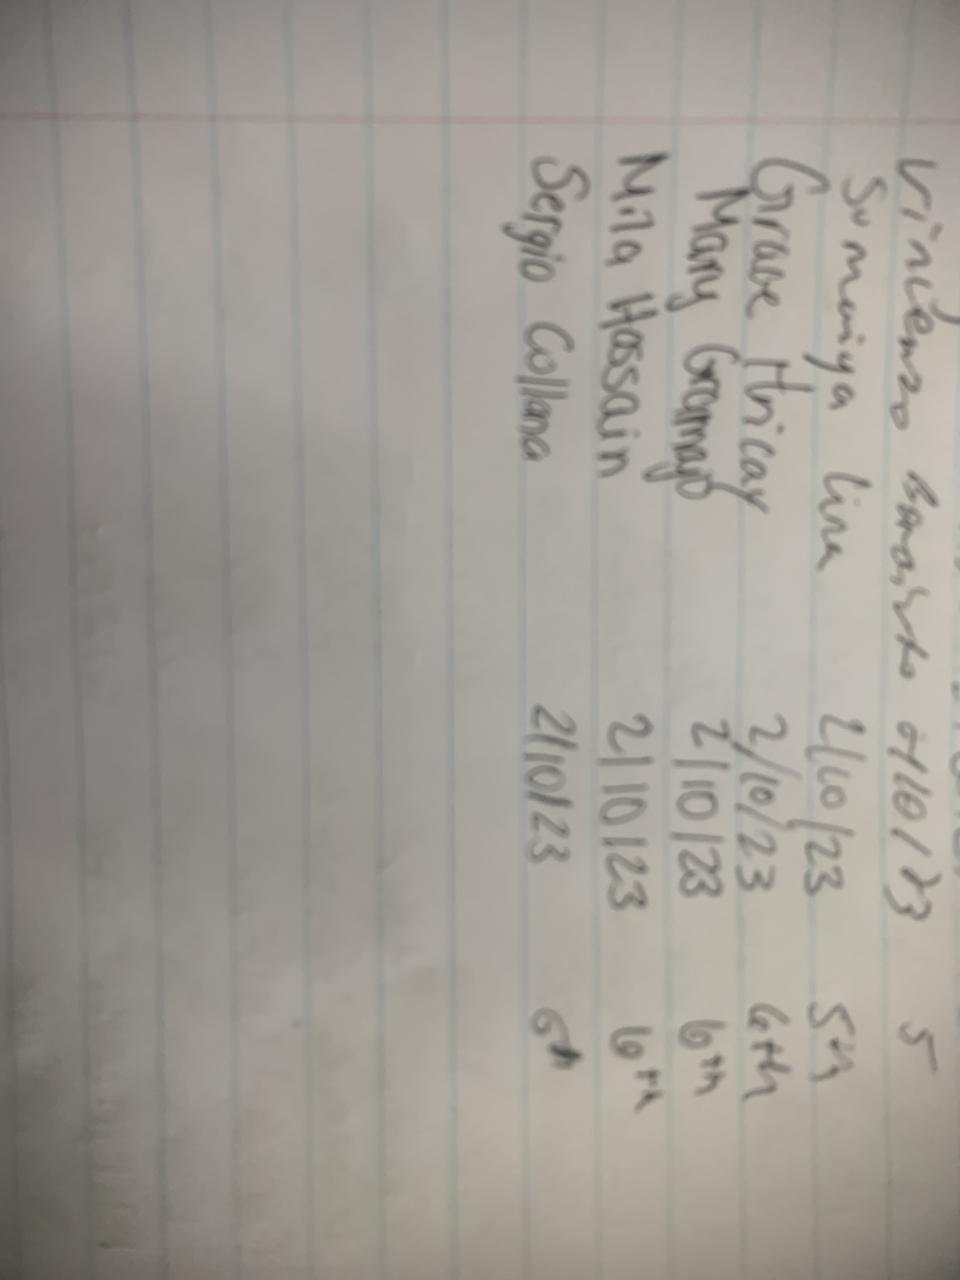 Vincenzo 5
Sumaiya lira 2/10/23 5th
Grace Hricay 2/10/23 6th
Mary Gramajo 2/10/23 6th
Mila Hossain 2/10/23 6th
Sergio Collana 2/10/23 6th